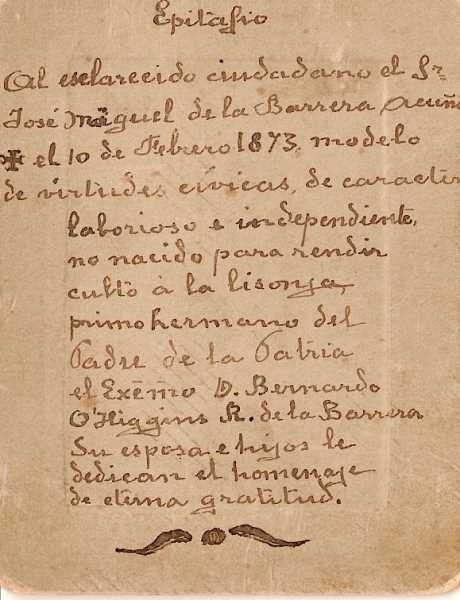 Epitafio
Al esclarecido ciudadano el Sr.
José Miguel de la Barrera Acuña
✠ el 10 de Febrero 1873. modelo
de virtudes cívicas, de caracter
laborioso e independiente,
no nacido para rendir
culto à la lisonja,
primo hermano del
Padre de la Patria
el Exẽmo D. Bernardo
O'Higgins R. de la Barrera
Su esposa e hijos le
dedican el homenaje
de eterna gratitud.